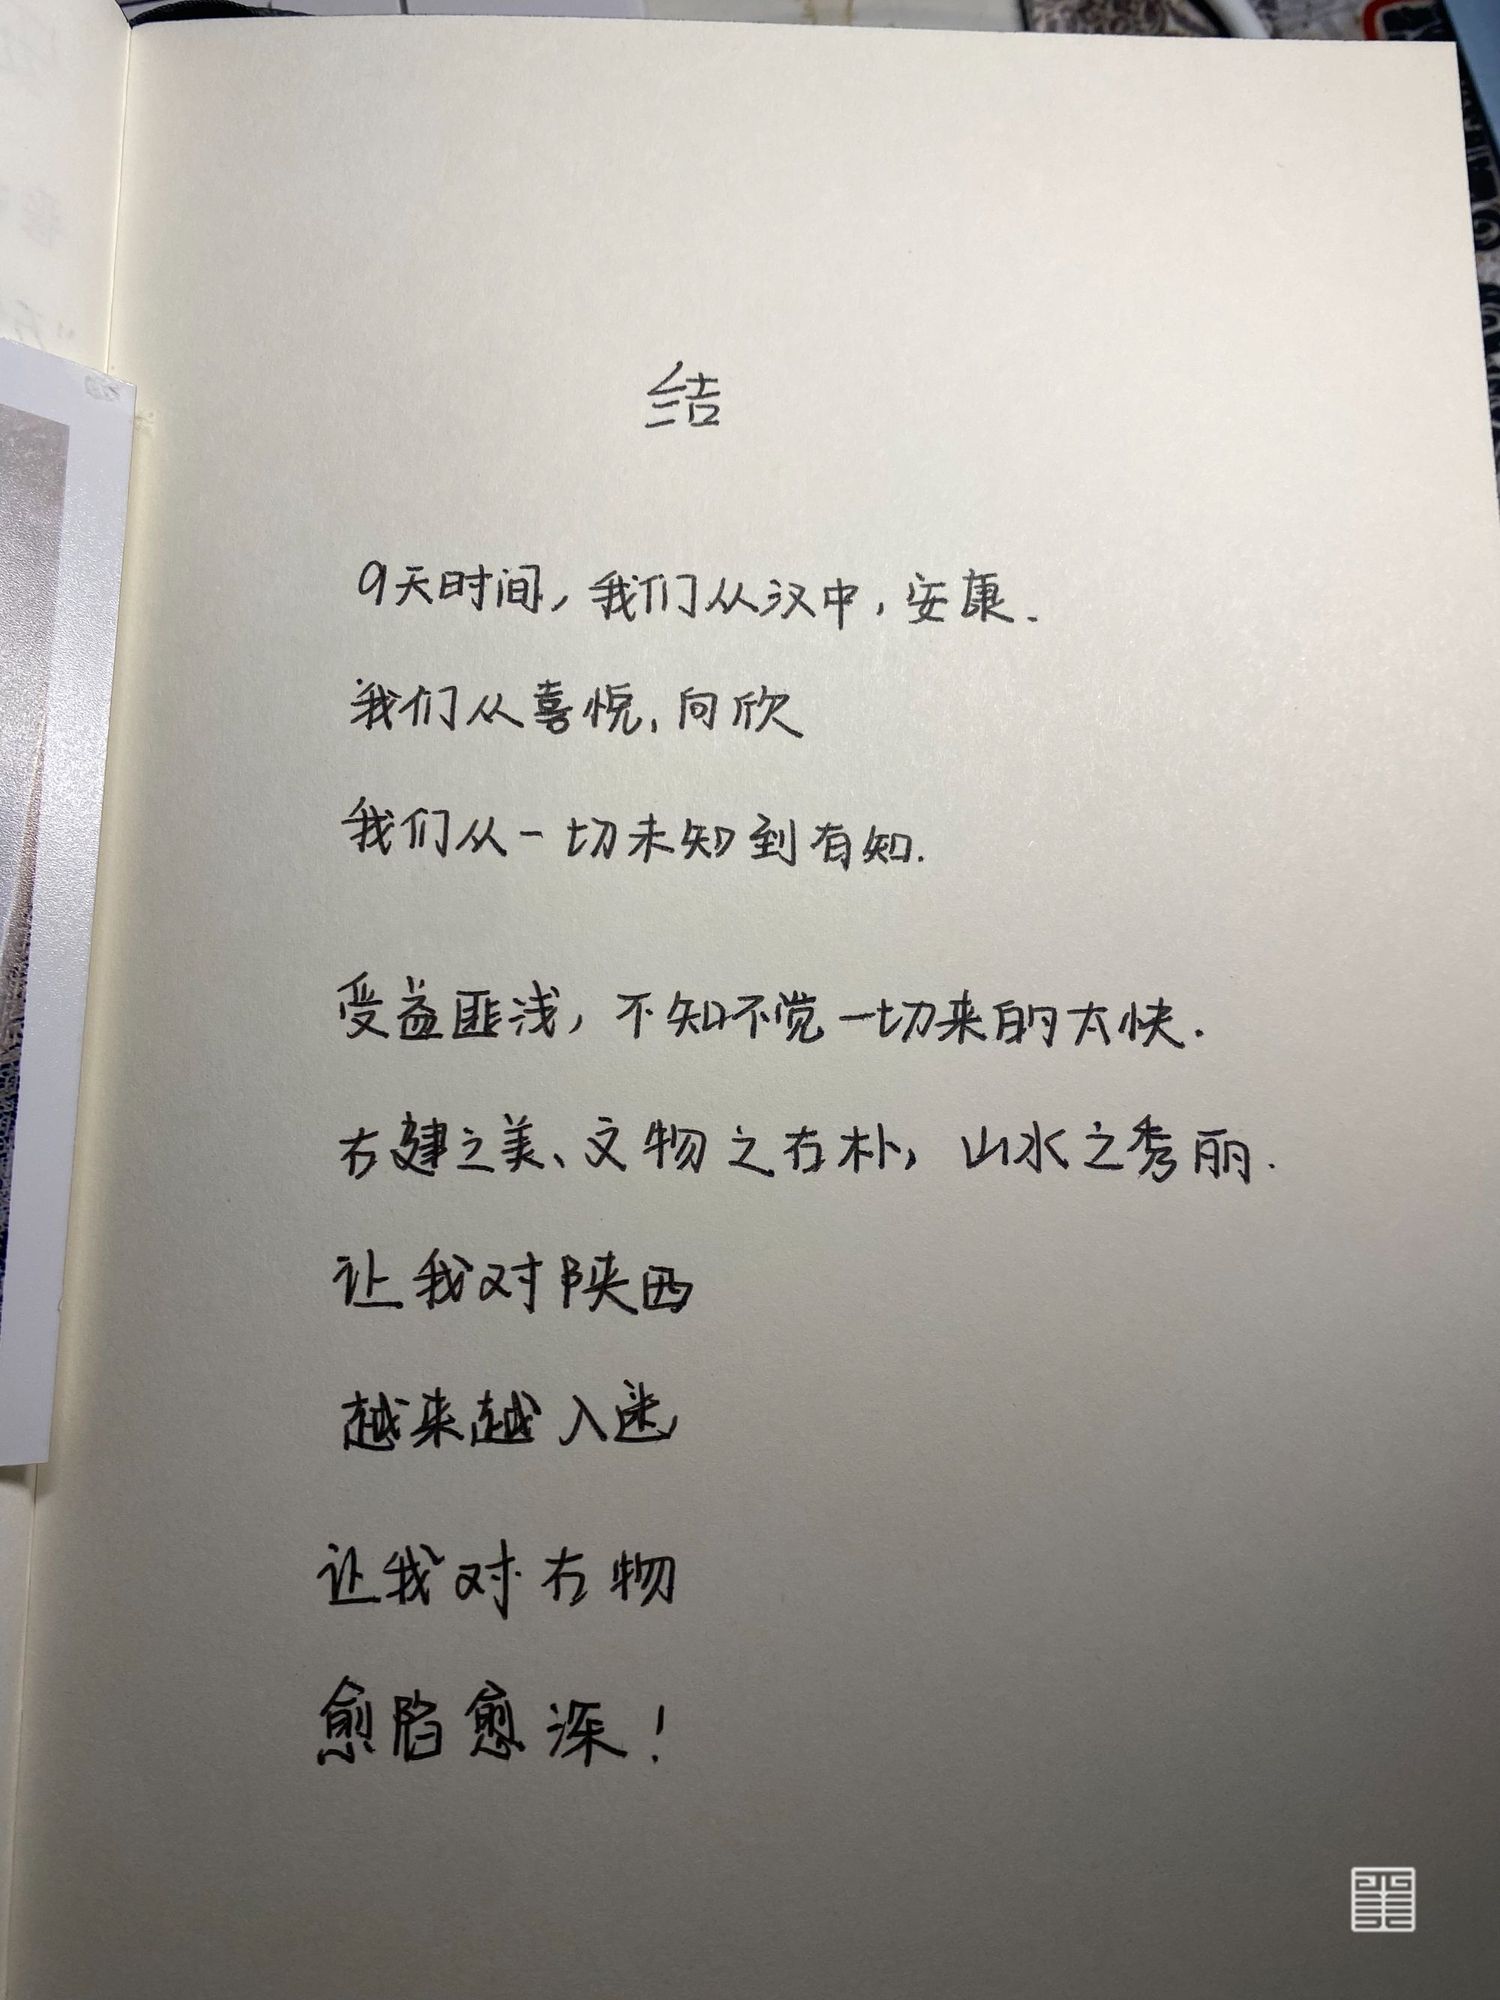 结
9天时间，我们从汉中，安康.
我们从喜悦，向欣
我们从一切未知到有知.
受益匪浅，不知不觉一切来的太快.
古建之美、文物之古朴，山水之秀丽.
让我对陕西
越来越入迷
让我对古物
愈陷愈深！